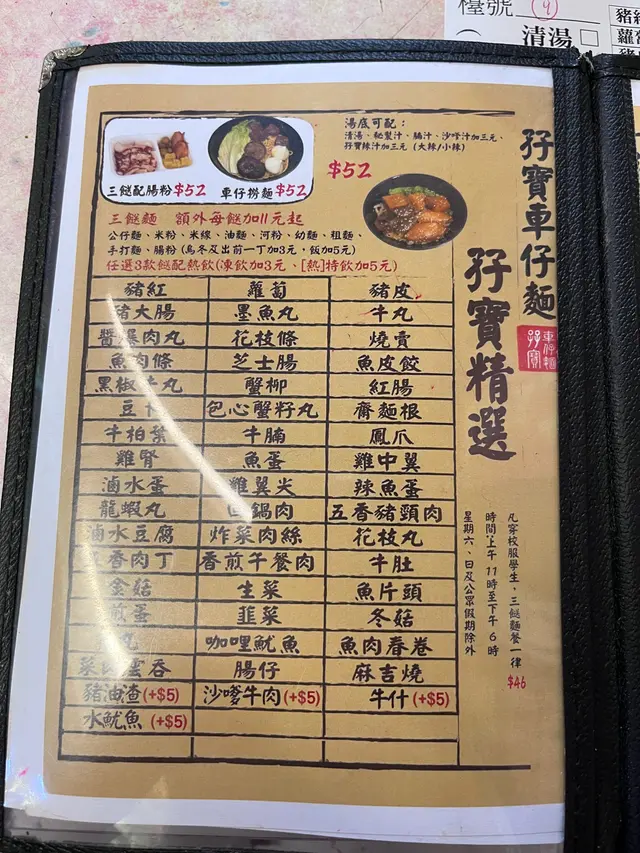 檯號
(9)
清湯 □
三餸配腸粉 $52
車仔撈麵 $52
湯底可配：
清湯、秘製汁、腩汁、沙嗲汁加三元、
孖寶辣汁加三元 (大辣/小辣)
$52
三餸麵 額外每餸加11元起
公仔麵、米粉、米線、油麵、河粉、幼麵、粗麵、
手打麵、腸粉 (烏冬及出前一丁加3元，飯加5元)
任選3款餸配熱飲(凍飲加3元、[熱]特飲加5元)
豬紅 蘿蔔 豬皮
豬大腸 墨魚丸 牛丸
醬爆肉丸 花枝條 燒賣
魚肉條 芝士腸 魚皮餃
黑椒牛丸 蟹柳 紅腸
豆卜 包心蟹籽丸 齋麵根
牛柏葉 牛腩 鳳爪
雞腎 魚蛋 雞中翼
滷水蛋 雞翼尖 辣魚蛋
龍蝦丸 回鍋肉 五香豬頸肉
滷水豆腐 炸菜肉絲 花枝丸
五香肉丁 香煎午餐肉 牛肚
金菇 生菜 魚片頭
煎蛋 韭菜 冬菇
丸 咖哩魷魚 魚肉春卷
菜肉雲吞 腸仔 麻吉燒
豬油渣 (+$5) 沙嗲牛肉 (+$5) 牛什 (+$5)
水魷魚 (+$5)
孖寶車仔麵
車仔麵
孖寶
孖寶精選
凡穿校服學生，三餸麵餐一律
$46
時間上午11時至下午6時
星期六、日及公眾假期除外